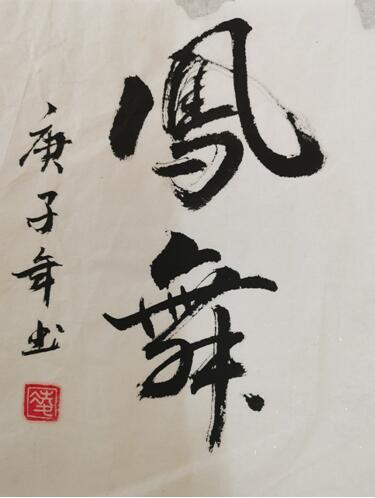 鳳舞
庚子年书